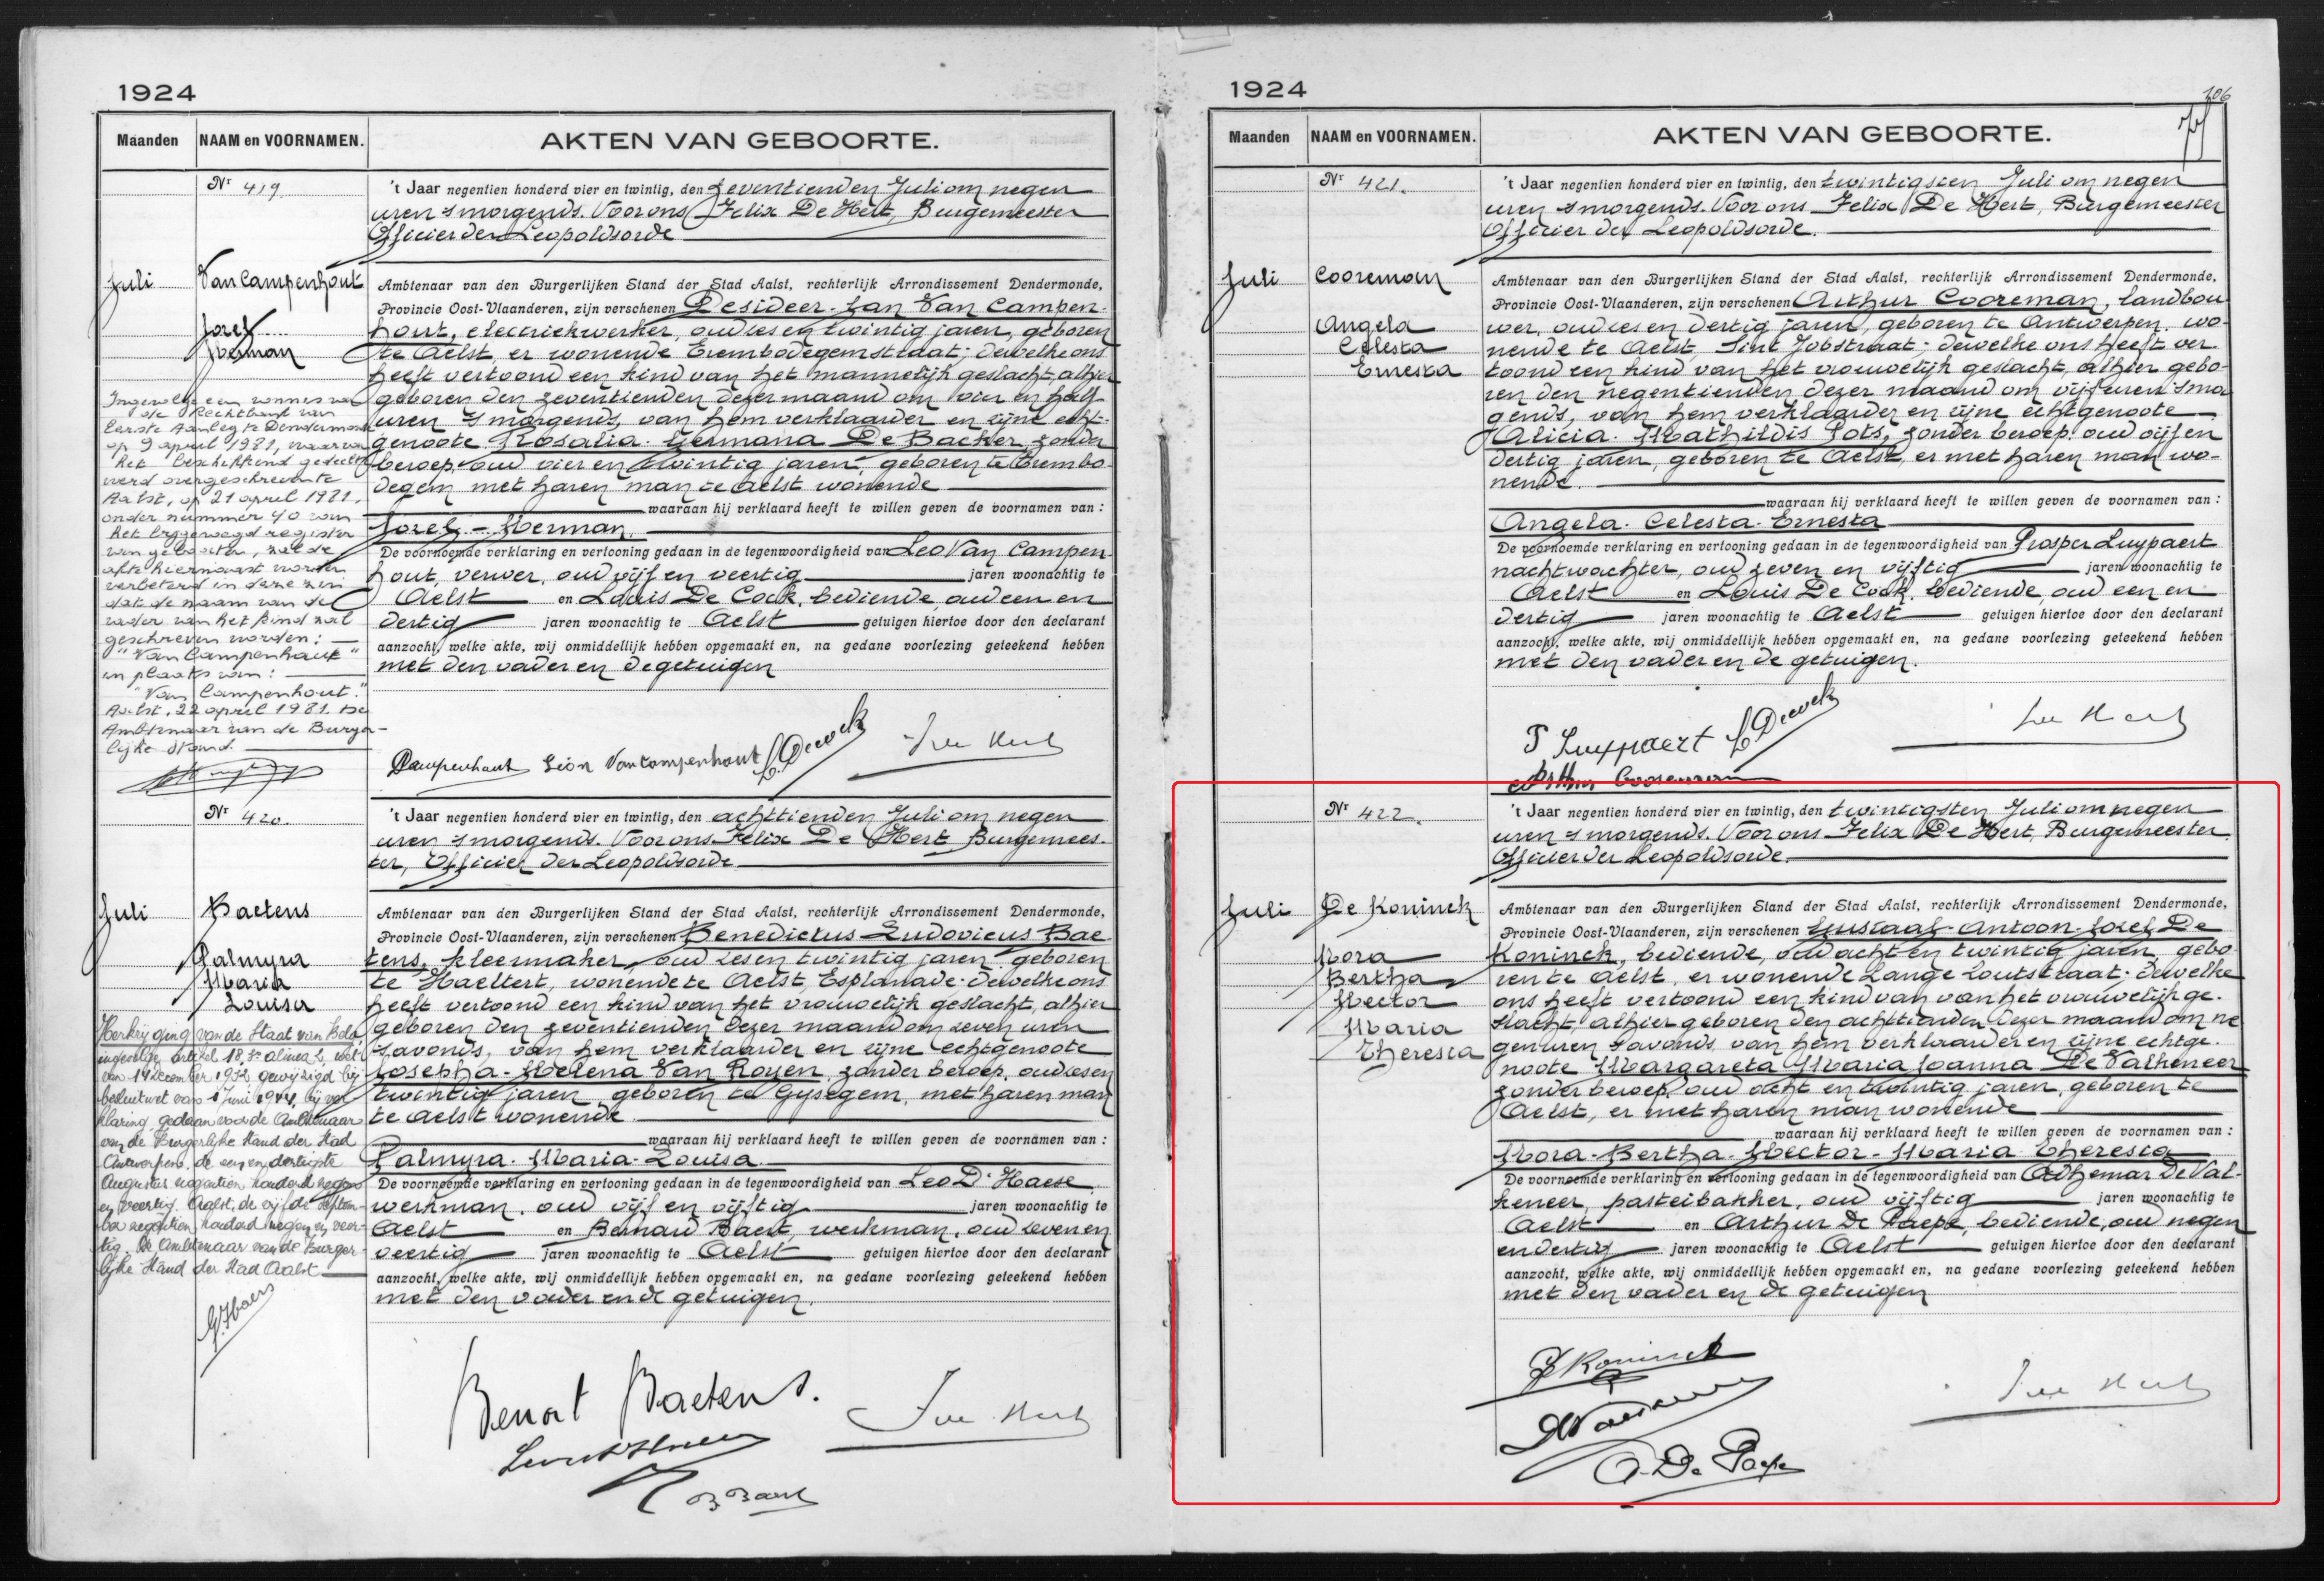 1924
Maanden NAAM en VOORNAMEN. AKTEN VAN GEBOORTE.
Nr 419.
't Jaar negentien honderd vier en twintig, den zeventienden Juli om negen
uren 's morgends. Voor ons Felix De Hert, Burgemeester
Officier der Leopoldsorde
Juli
Van Campenhout
Jozef
Herman
Ambtenaar van den Burgerlijken Stand der Stad Aalst, rechterlijk Arrondissement Dendermonde,
Provincie Oost-Vlaanderen, zijn verschenen Desideer-Jan Van Campen-
hout, electriekwerker, oud zes en twintig jaren, geboren
te Aelst, er wonende Erembodegemstraat; dewelke ons
heeft vertoond een kind van het mannelijk geslacht, alhier
geboren den zeventienden dezer maand om vier en half
uren 's morgends, van hem verklaarder en zijne echt-
genoote Rosalia-Germana De Backer, zonder
beroep, oud vier en twintig jaren, geboren te Erembo-
degem met haren man te Aelst wonende
waaraan hij verklaard heeft te willen geven de voornamen van :
Jozef - Herman.
De voornoemde verklaring en vertooning gedaan in de tegenwoordigheid van Leo Van Campen-
hout, verver, oud vijf en veertig jaren woonachtig te
Aelst en Louis De Cock, bediende, oud een en
dertig jaren woonachtig te Aelst getuigen hiertoe door den declarant
aanzocht, welke akte, wij onmiddellijk hebben opgemaakt en, na gedane voorlezing geteekend hebben
met den vader en de getuigen
Ingevolge een vonnis van
de Rechtbank van
Eerste Aanleg te Dendermonde
op 9 april 1981, waarvan
het beschikkend gedeelte
werd overgeschreven te
Aalst, op 21 april 1981,
onder nummer 40 van
het bijgevoegd register
van geboorten, zal de
akte hiernaast worden
verbeterd in deze zin
dat de naam van de
vader van het kind zal
geschreven worden :
"Van Campenhout"
in plaats van :
"Van Campenhout."
Aalst, 22 april 1981. De
Ambtenaar van de Burger-
lijke Stand.
Campenhout Léon Van Campenhout L. Decock
Nr 420.
't Jaar negentien honderd vier en twintig, den achttienden Juli om negen
uren 's morgends. Voor ons Felix De Hert, Burgemees-
ter, Officier der Leopoldsorde
Juli
Baetens
Palmyra
Maria
Louisa
Ambtenaar van den Burgerlijken Stand der Stad Aalst, rechterlijk Arrondissement Dendermonde,
Provincie Oost-Vlaanderen, zijn verschenen Benedictus-Ludovicus Bae-
tens, kleermaker, oud zes en twintig jaren, geboren
te Haeltert, wonende te Aelst, Esplanade; dewelke ons
heeft vertoond een kind van het vrouwelijk geslacht, alhier
geboren den zeventienden dezer maand om zeven uren
's avonds, van hem verklaarder en zijne echtgenoote
Josepha-Helena Van Royen, zonder beroep, oud zes en
twintig jaren geboren te Gysegem, met haren man
te Aelst wonende
waaraan hij verklaard heeft te willen geven de voornamen van :
Palmyra-Maria-Louisa
De voornoemde verklaring en vertooning gedaan in de tegenwoordigheid van Leo D'Haese,
werkman, oud vijf en vijftig jaren woonachtig te
Aelst en Bernard Baert, werkman, oud zeven en
veertig jaren woonachtig te Aelst getuigen hiertoe door den declarant
aanzocht, welke akte, wij onmiddellijk hebben opgemaakt en, na gedane voorlezing geteekend hebben
met den vader en de getuigen.
Herkrijging van de Staat van Belg,
ingevolge artikel 18, 3° alinea 2, wet
van 14 december 1932 gewijzigd bij
besluitwet van 1 Juni 1944, bij ver-
klaring, gedaan voor de Ambtenaar
van de Burgerlijke Stand der Stad
Antwerpen, de een en dertigste
Augustus negentien honderd negen
en veertig. Aalst, de vijfde septem-
ber negentien honderd negen en veer-
tig. De Ambtenaar van de Burger-
lijke Stand der Stad Aalst
Benoit Baetens.
B Baert
1924
106
Maanden NAAM en VOORNAMEN. AKTEN VAN GEBOORTE.
Nr 421.
't Jaar negentien honderd vier en twintig, den twintigsten Juli om negen
uren 's morgends. Voor ons Felix De Hert, Burgemeester
Officier der Leopoldsorde.
Juli
Cooreman
Angela
Celesta
Ernesta
Ambtenaar van den Burgerlijken Stand der Stad Aalst, rechterlijk Arrondissement Dendermonde,
Provincie Oost-Vlaanderen, zijn verschenen Arthur Cooreman, landbou-
wer, oud zes en dertig jaren, geboren te Antwerpen, wo-
nende te Aelst, Sint Jobstraat; dewelke ons heeft ver-
toond een kind van het vrouwelijk geslacht, alhier gebo-
ren den negentienden dezer maand om vijf uren 's mor-
gends, van hem verklaarder en zijne echtgenoote
Alicia-Mathildis Pots, zonder beroep, oud vijf en
dertig jaren, geboren te Aelst, er met haren man wo-
nende.
waaraan hij verklaard heeft te willen geven de voornamen van :
Angela-Celesta-Ernesta
De voornoemde verklaring en vertooning gedaan in de tegenwoordigheid van Prosper Luypaert
nachtwachter, oud zeven en vijftig jaren woonachtig te
Aelst en Louis De Cock, bediende, oud een en
dertig jaren woonachtig te Aelst getuigen hiertoe door den declarant
aanzocht, welke akte, wij onmiddellijk hebben opgemaakt en, na gedane voorlezing geteekend hebben
met den vader en de getuigen.
P Luyppaert L. Decock
Arthur Cooreman
Nr 422.
't Jaar negentien honderd vier en twintig, den twintigsten Juli om negen
uren 's morgends. Voor ons Felix De Hert, Burgemeester
Officier der Leopoldsorde.
Juli
De Koninck
Nora
Bertha
Hector
Maria
Theresia
Ambtenaar van den Burgerlijken Stand der Stad Aalst, rechterlijk Arrondissement Dendermonde,
Provincie Oost-Vlaanderen, zijn verschenen Gustaaf-Antoon-Jozef De
Koninck, bediende, oud acht en twintig jaren, gebo-
ren te Aelst, er wonende Lange Zoutstraat; dewelke
ons heeft vertoond een kind van van het vrouwelijk ge-
slacht, alhier geboren den achttienden dezer maand om ne-
gen uren 's avonds, van hem verklaarder en zijne echtge-
noote Margareta Maria Joanna De Valkeneer
zonder beroep, oud acht en twintig jaren, geboren te
Aelst, er met haren man wonende
waaraan hij verklaard heeft te willen geven de voornamen van :
Nora-Bertha-Hector-Maria Theresia
De voornoemde verklaring en vertooning gedaan in de tegenwoordigheid van Adhemar De Val-
keneer, pasteibakker, oud vijftig jaren woonachtig te
Aelst en Arthur De Paepe, bediende, oud negen
en dertig jaren woonachtig te Aelst getuigen hiertoe door den declarant
aanzocht, welke akte, wij onmiddellijk hebben opgemaakt en, na gedane voorlezing geteekend hebben
met den vader en de getuigen
A. De Paepe